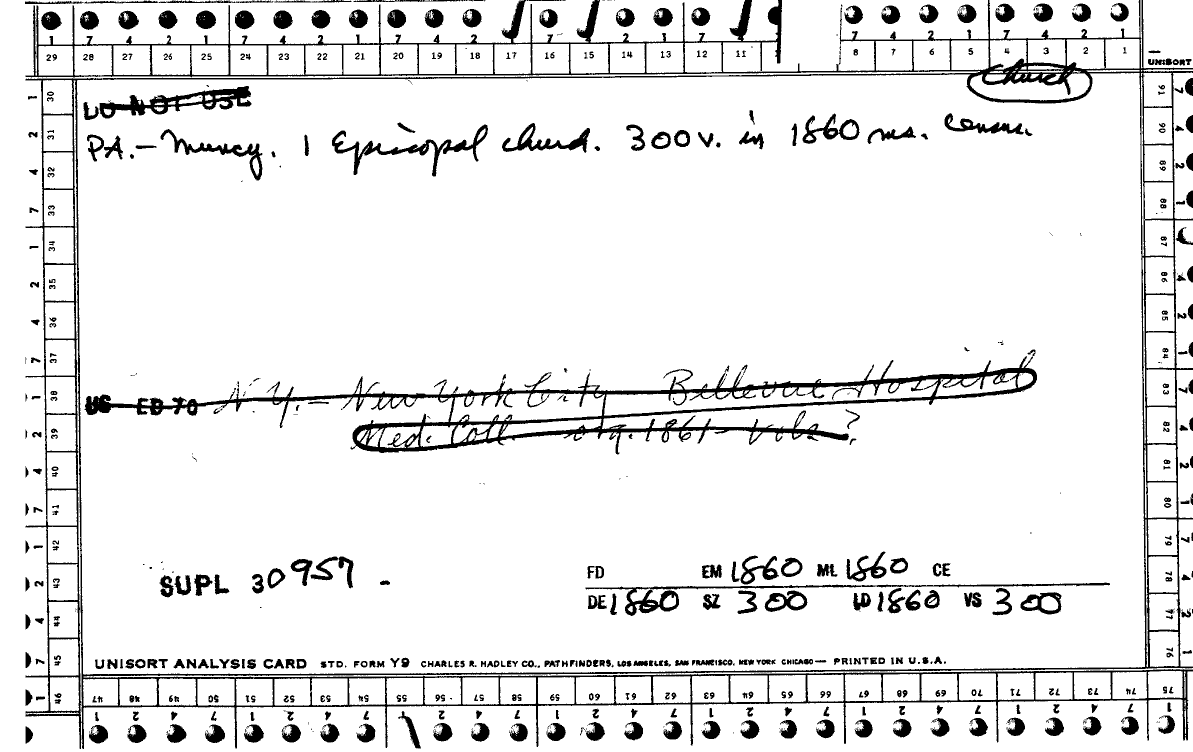 7 4 2 1 7 4 2 1 7 4 2 1 7 4 2 1 7 4 2 1 7 4 2 1
29 28 27 26 25 24 23 22 21 20 19 18 17 16 15 14 13 12 11 8 7 6 5 4 3 2 1
UNISORT
Church
DO NOT USE
PA. - Muncy. 1 Episcopal church. 300 v. in 1860 ms. census.
US ED 70 N.Y. - New York City Bellevue Hospital
Med. Coll. org. 1861 - vols ?
SUPL 30957 -
FD EM 1860 ML 1860 CE
DE 1860 SZ 300 LD 1860 VS 300
UNISORT ANALYSIS CARD STD. FORM Y9 CHARLES R. HADLEY CO., PATHFINDERS, LOS ANGELES, SAN FRANCISCO, NEW YORK CHICAGO — PRINTED IN U.S.A.
47 48 49 50 51 52 53 54 55 56 57 58 59 60 61 62 63 64 65 66 67 68 69 70 71 72 73 74 75